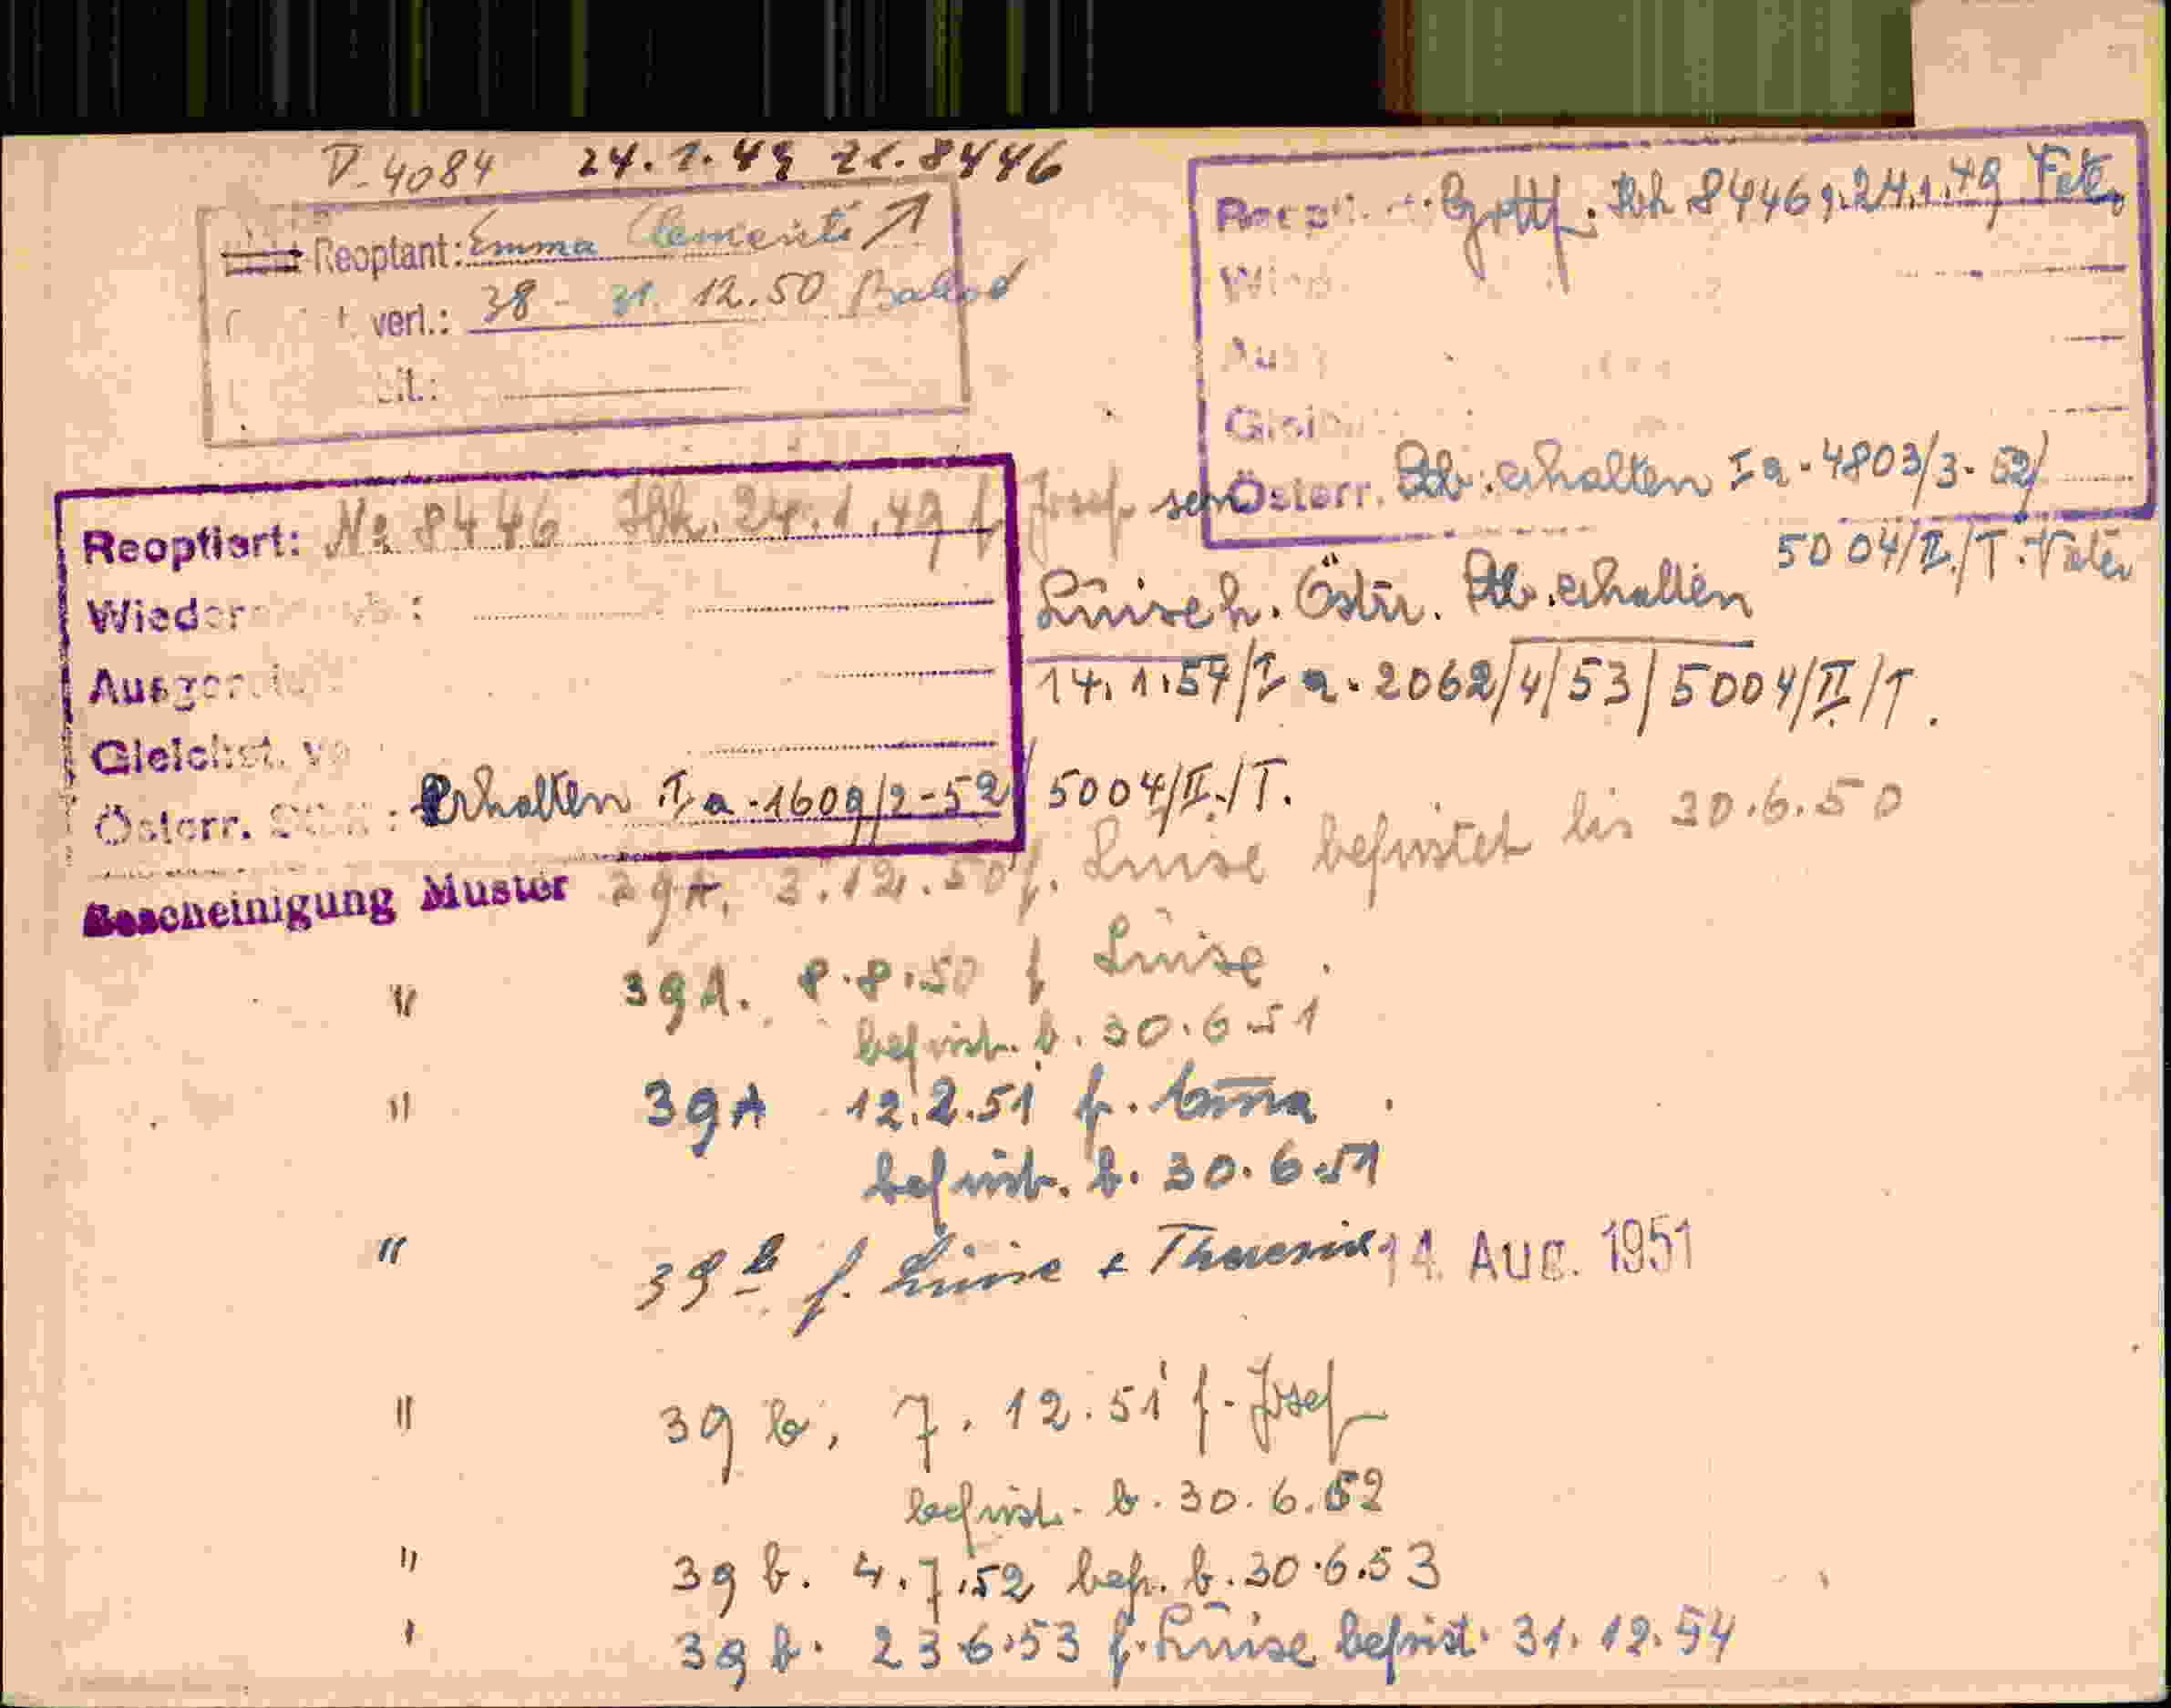 V. 4084 24.1.49 Zl. 8446
Reoptant: Emma Clementi
verl.: 38 - 31. 12.50
Gottf. 8446, 24.1.49
Österr. Stb. erhalten Ia-4803/3-52/
5004/II./T. Vater
Reoptiert: No 8446 24.1.49 f. Josef sen
Luise h. Östr. Stb. erhalten
14.1.54/Ia-2062/4/53/5004/II/T.
Wieder :
Ausger
Gleichst. v
Österr. : Erhalten Ia-1609/2-52/ 5004/II./T.
Bescheinigung Muster 39A, 3.12.50 f. Luise befristet bis 30.6.50
" 39A. 8.8.50 f Luise.
befrist. b. 30.6.51
" 39A 12.2.51 f. Emma
befrist. b. 30.6.51
" 39b f. Luise + Theresia 14. AUG. 1951
" 39b, 7.12.51 f. Josef
befrist. b. 30.6.52
" 39b. 4.7.52 befr. b. 30.6.53
" 39b. 23.6.53 f. Luise befrist. 31.12.54